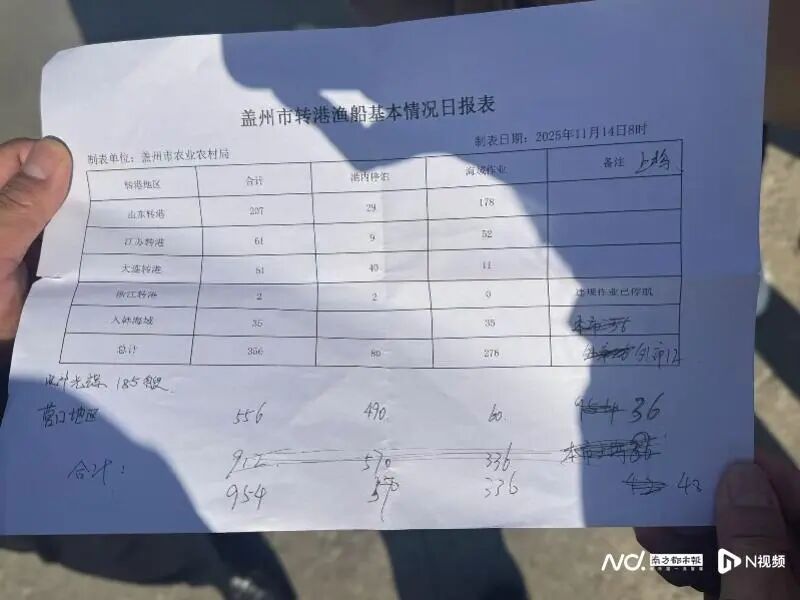 盖州市转港渔船基本情况日报表
制表单位：盖州市农业农村局 制表日期：2025年11月14日8时
转港地区 合计 港内停泊 海域作业 备注 上路
山东转港 207 29 178
江苏转港 61 9 52
大连转港 51 40 11
浙江转港 2 2 0 违规作业已停航
入韩海域 35 35 本市
总计 356 80 276 外市12
185艘
营口地区 556 490 60 36
912 570 336 本市
合计：
954 570 336 42
N 南方都市报 N视频